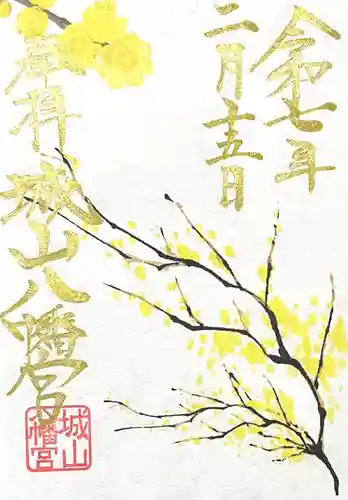 令和七年
二月十五日
奉拝
城山八幡宮
城山
八幡宮